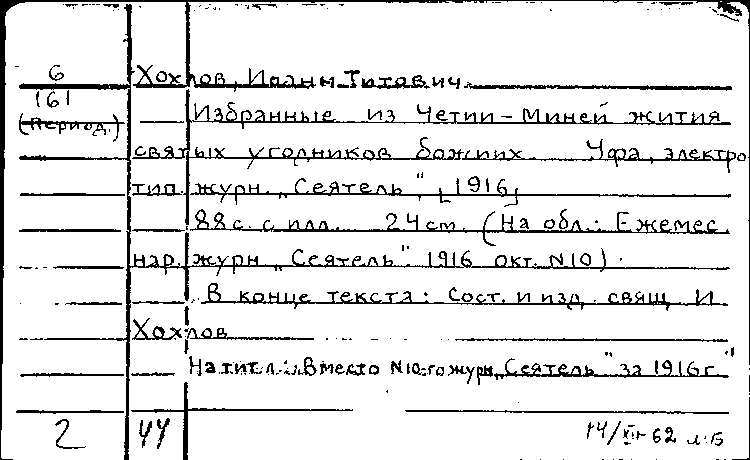 6
161
(Период.)
Хохлов, Иоанн Титович.
Избранные из Четии-Миней жития
святых угодников божиих. Уфа, электро
тип. журн. „Сеятель", [1916]
88 с. с илл. 24 см. (На обл.: Ежемес.
нар. журн „Сеятель". 1916 окт. N10).
В конце текста: Сост. и изд. свящ И.
Хохлов
На тит. л.: „Вместо N10-го журн. „Сеятель" за 1916 г."
2
44
14/XII-62